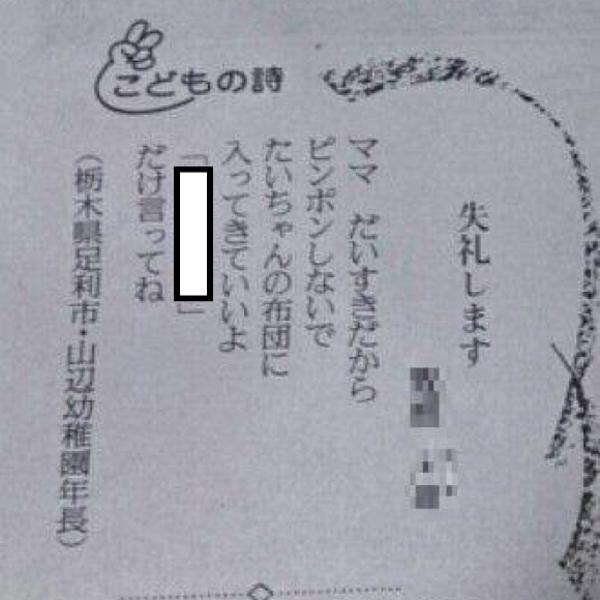 こどもの詩
失礼します
ママ　だいすきだから
ピンポンしないで
たいちゃんの布団に
入ってきていいよ
「」
だけ言ってね
（栃木県足利市・山辺幼稚園年長）